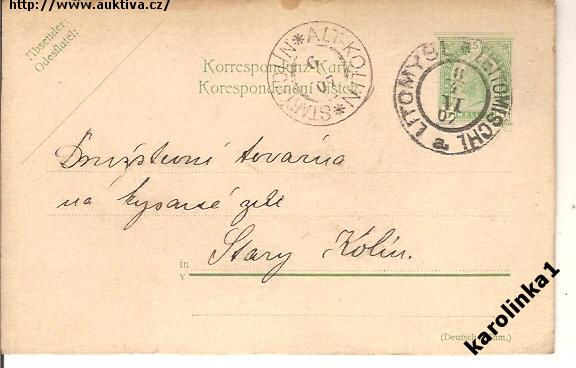 http://www.auktiva.cz/
Absender:
Odesílatel:
Korrespondenz-Karte
Korespondenční lístek
STARÝ KOLÍN * ALT-KOLIN *
LITOMYŠL * LEITOMISCHL
a
Družstevní továrna
na kysané zelí
in
v
Starý Kolín.
(Deutsch-böhm.)
karolinka1